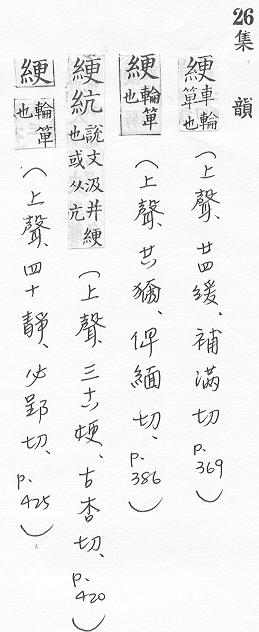 26 集韻
綆 車輪箄也（上聲、廿四緩、補滿切 p.369）
綆 輪箄也（上聲、廿八獮、俾緬切、p.386）
綆 說文汲井綆也或从亢（上聲、三十八梗、古杏切、p.420）
綆 輪箄也（上聲、四十靜、必郢切、p.425）